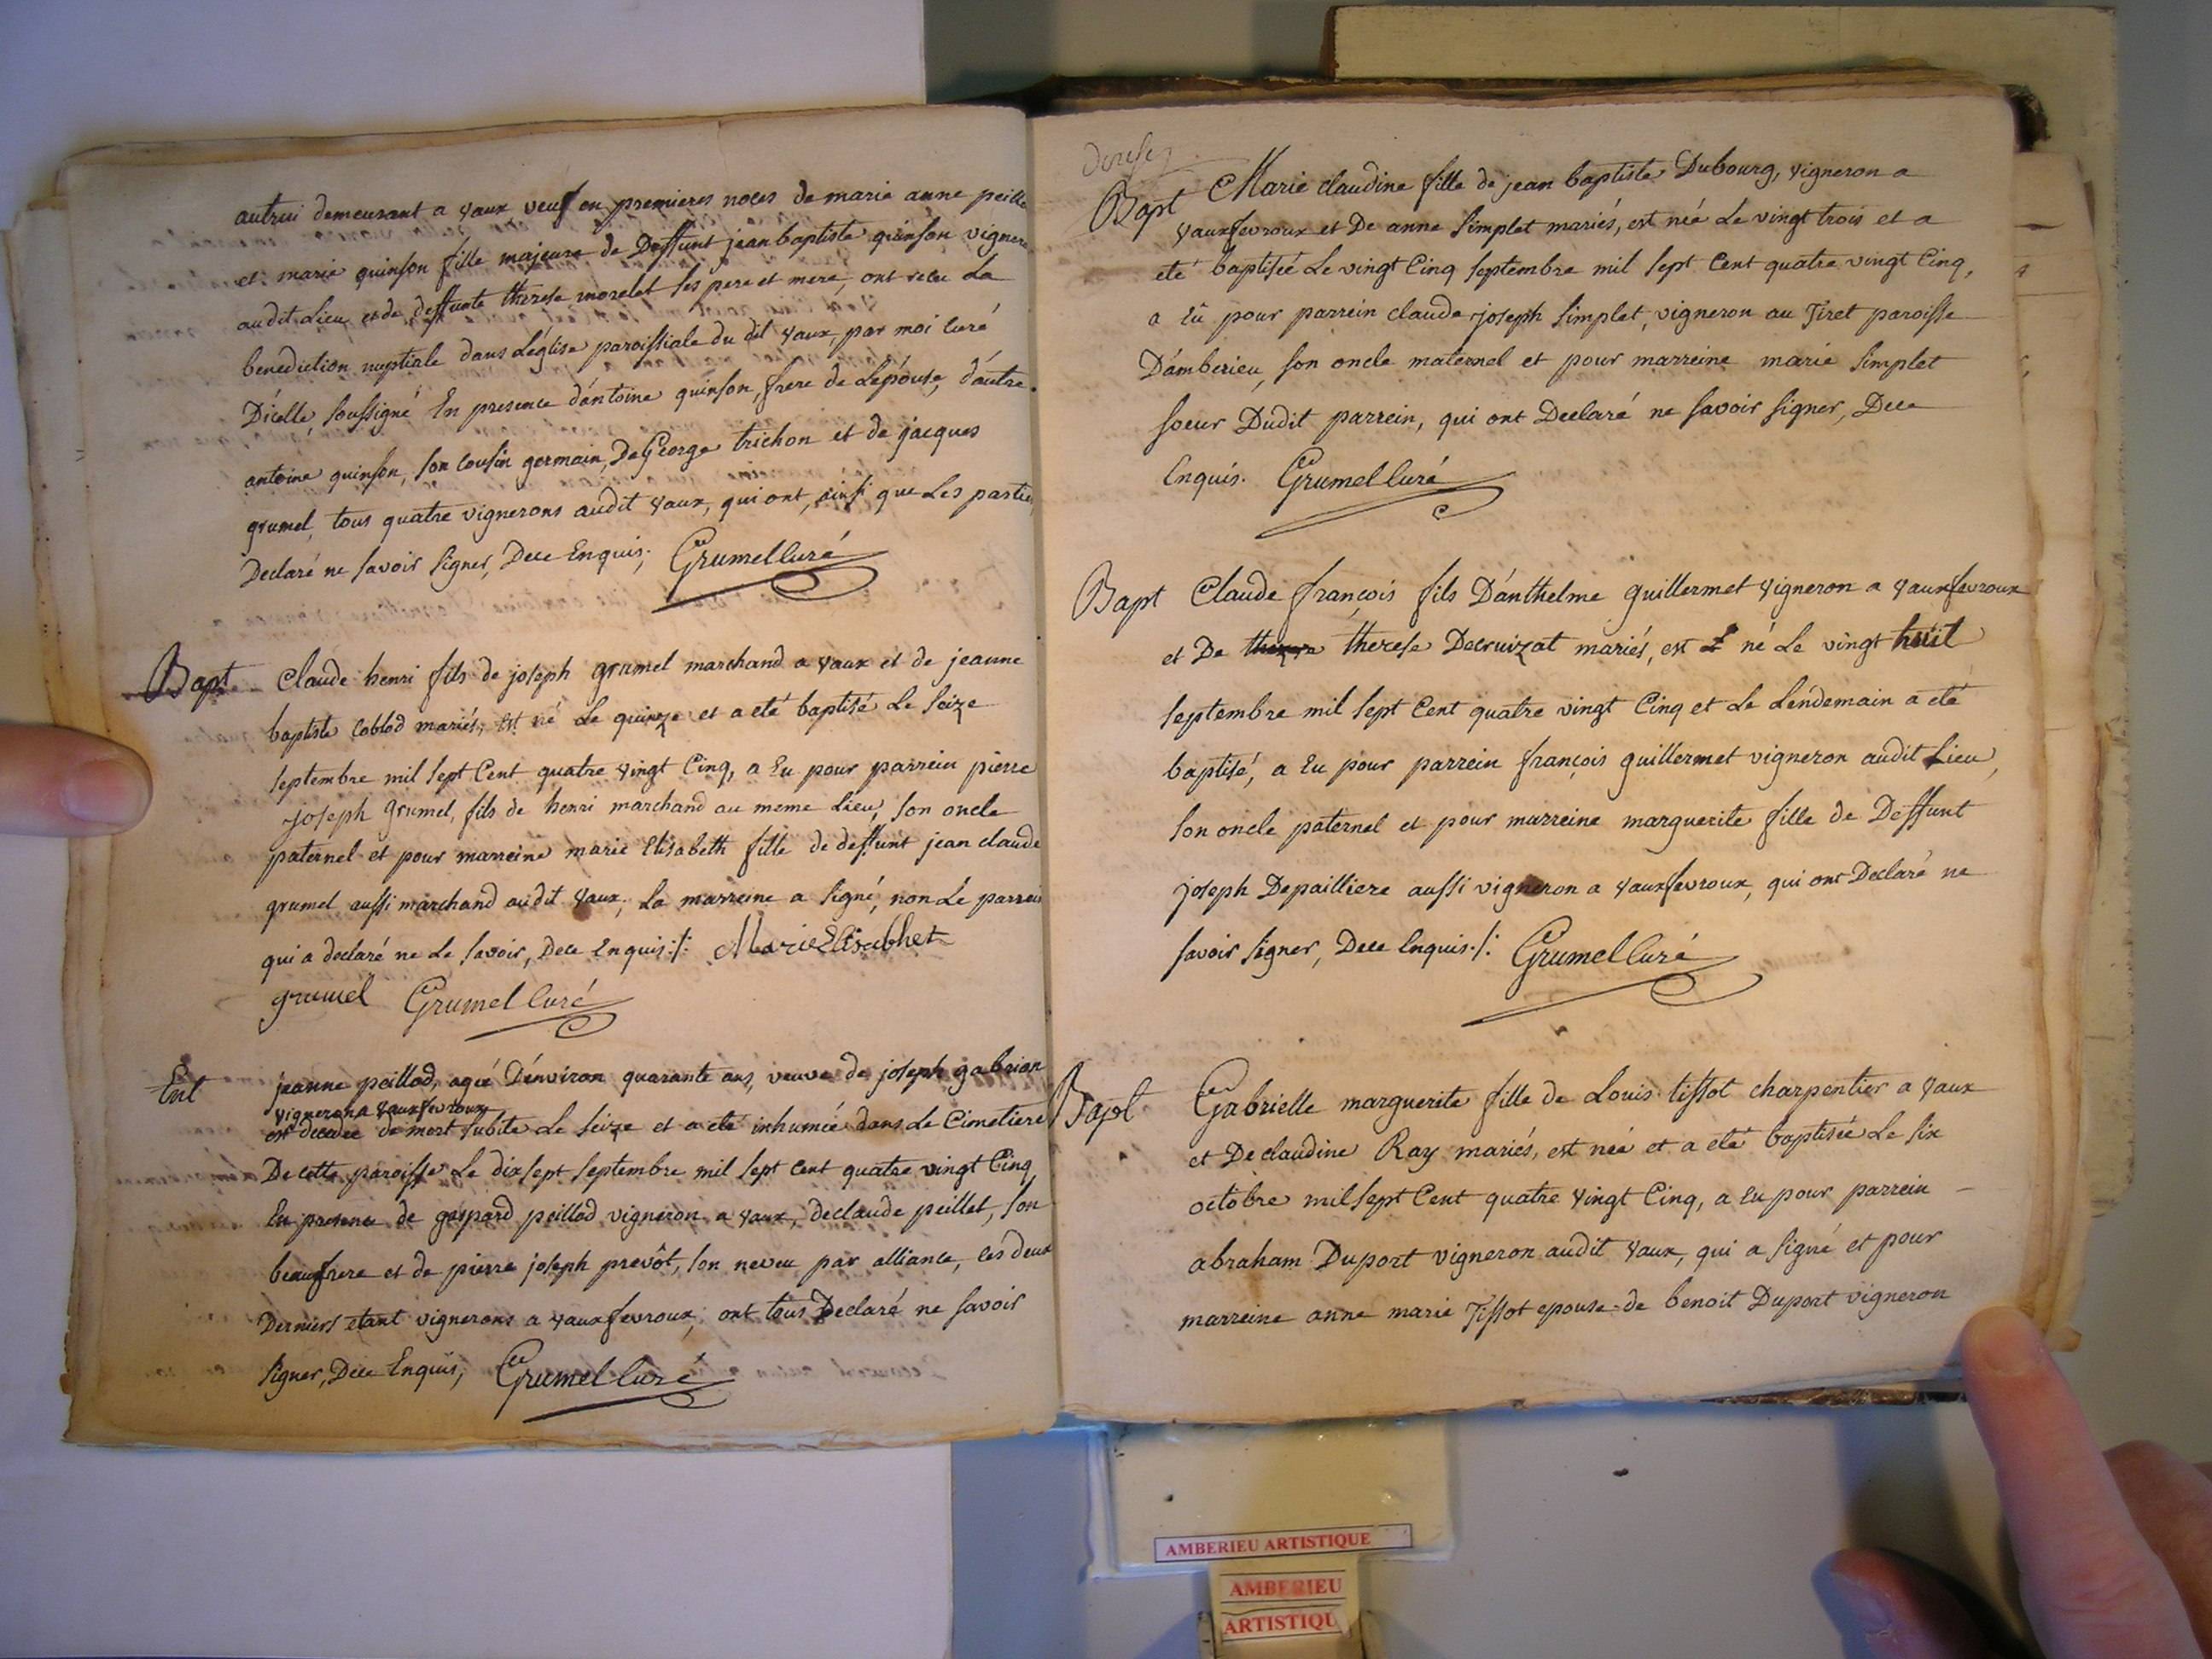 autrui demeurant a vaux veuf en premieres noces de marie anne
et marie quinson fille majeure de Deffunt jean baptiste quinson
audit Lieu et de deffunte therese morelet ses pere et mere, ont recu La
benediction nuptiale dans L'église paroissiale du dit vaux, par moi Curé
D'icelle, soussigné En presence d'antoine quinson, frere de L'epouse, d'autre
antoine quinson, son cousin germain, De George trichon et de jacques
grumel, tous quatre vignerons audit vaux, qui ont, ainsi que Les
Declaré ne savoir signer, Dece Enquis, Grumel Curé
Bapt Claude henri fils de joseph grumel marchand a vaux et de jeanne
baptiste Coblod mariés, Est né Le quinze et a eté baptisé Le seize
septembre mil sept Cent quatre vingt Cinq, a Eu pour parrein pierre
joseph grumel, fils de henri marchand au meme Lieu, son oncle
paternel et pour marreine marie Elisabeth fille de deffunt jean claude
grumel aussi marchand audit vaux, La marreine a signé, non Le parrein
qui a declaré ne Le savoir, Dece Enquis ./. Marie Elisabhet
grumel Grumel Curé
Ent jeanne peillod, ageé D'environ quarante ans, veuve de joseph gabrion
vigneron a vauxfevroux
est decedee de mort subite Le seize et a eté inhumeé dans Le Cimetiere
De cette paroisse Le dix sept septembre mil sept Cent quatre vingt Cinq
En presence de gaspard peillod vigneron a vaux, De claude peillet, son
beaufrere et de pierre joseph prevôt, son neveu par alliance, Ces deux
Derniers etant vignerons a vauxfevroux, ont tous Declaré ne savoir
signer, Dece Enquis, Grumel Curé
Bapt Marie claudine fille de jean baptiste Dubourg, vigneron a
vauxfevroux et De anne simplet mariés, est neé Le vingt trois et a
eté baptiseé Le vingt Cinq septembre mil sept Cent quatre vingt Cinq,
a Eû pour parrein claude joseph simplet, vigneron au Tiret paroisse
D'amberieu, son oncle maternel et pour marreine marie simplet
soeur Dudit parrein, qui ont Declaré ne savoir signer, Dece
Enquis. Grumel Curé
Bapt Claude françois fils D'anthelme guillermet vigneron a vauxfevroux
et De therese Decruizat mariés, est né Le vingt huit
septembre mil sept Cent quatre vingt Cinq et Le Lendemain a eté
baptisé, a Eu pour parrein françois guillermet vigneron audit Lieu,
son oncle paternel et pour marreine marguerite fille de Deffunt
joseph Depailliere aussi vigneron a vauxfevroux, qui ont Declaré ne
savoir signer, Dece Enquis ./. Grumel Curé
Bapt Gabrielle marguerite fille de Louis tissot charpentier a vaux
et De claudine Ray mariés, est neé et a eté baptiseé Le six
octobre mil sept Cent quatre vingt Cinq, a Eu pour parrein
abraham Duport vigneron audit vaux, qui a signé et pour
marreine anne marie Tissot epouse de benoit Duport vigneron
AMBERIEU ARTISTIQUE
AMBERIEU
ARTISTIQU